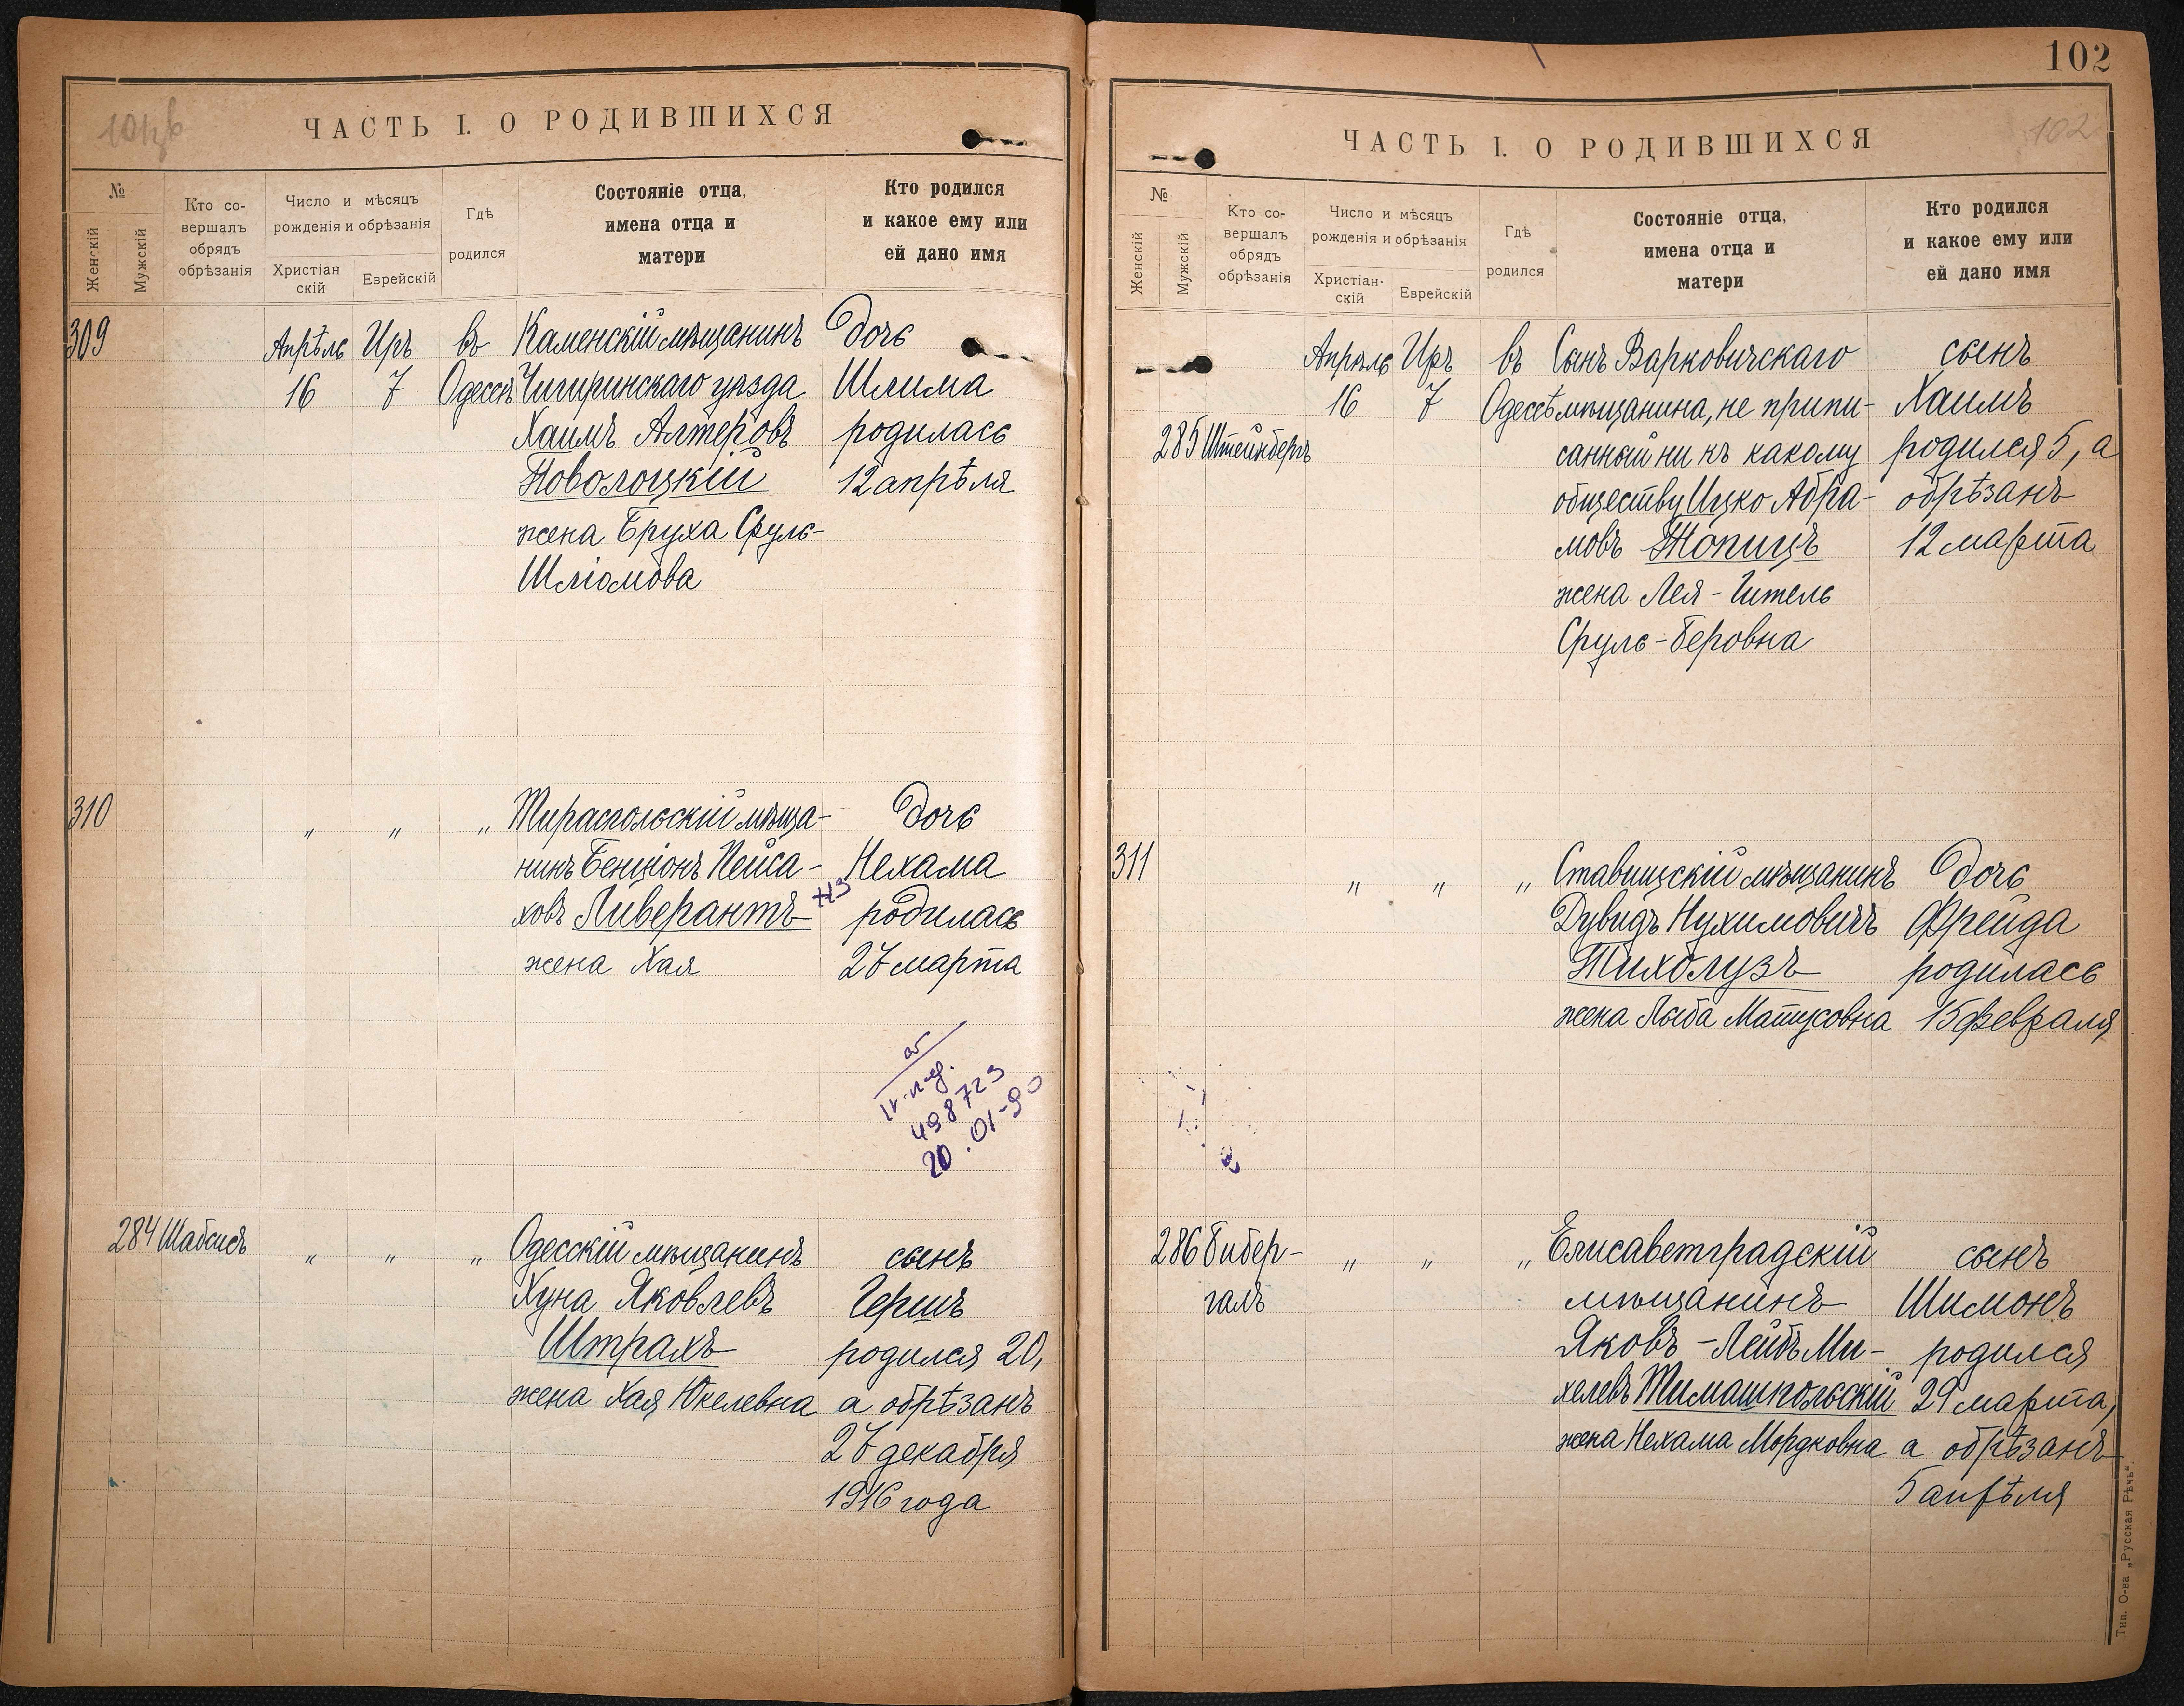 ЧАСТЬ I. О РОДИВШИХСЯ
№
Женскій
Мужскій
Кто со-
вершалъ
обрядъ
обрѣзанія
Число и мѣсяцъ
рожденія и обрѣзанія
Христіан
скій
Еврейскій
Гдѣ
родился
Состояніе отца,
имена отца и
матери
Кто родился
и какое ему или
ей дано имя
309
Апрѣль
16
Иръ
7
въ
Одессѣ
Каменскій мѣщанинъ
Чигиринскаго уѣзда
Хаимъ Алтеровъ
Новолоцкій
жена Бруха Сруль-
Шліомова
Дочь
Шлима
родилась
12 апрѣля
310
" " "
Тираспольскій мѣща-
нинъ Бенціонъ Пейса-
ховъ Ливерантъ
жена Хая
Дочь
Нехама
родилась
27 марта
498723
20.01-90
284 Шабсисъ
" " "
Одесскій мѣщанинъ
Хуна Яковлевъ
Штрахъ
жена Хая Юкелевна
сынъ
Гершъ
родился 20,
а обрѣзанъ
27 декабря
1916 года
102
102
ЧАСТЬ I. О РОДИВШИХСЯ
№
Женскій
Мужскій
Кто со-
вершалъ
обрядъ
обрѣзанія
Число и мѣсяцъ
рожденія и обрѣзанія
Христіан-
скій
Еврейскій
Гдѣ
родился
Состояніе отца,
имена отца и
матери
Кто родился
и какое ему или
ей дано имя
285 Штейнбергъ
Апрѣль
16
Иръ
7
въ
Одессѣ
Сынъ Варковичскаго
мѣщанина, не припи-
санный ни къ какому
обществу Ицко Абра-
мовъ Жопицъ
жена Лея-Гитель
Сруль-Беровна
сынъ
Хаимъ
родился 5, а
обрѣзанъ
12 марта
311
" " "
Ставищскій мѣщанинъ
Дувидъ Нухимовичъ
Тихолузъ
жена Лыба Матусовна
Дочь
Фрейда
родилась
15 февраля
286 Бибер-
галъ
" " "
Елисаветградскій
мѣщанинъ
Яковъ-Лейбъ Ми-
хелевъ Тимашпольскій
жена Нехама Мордковна
сынъ
Шимонъ
родился
29 марта,
а обрѣзанъ
5 апрѣля
Тип. О-ва „Русская Рѣчь“.